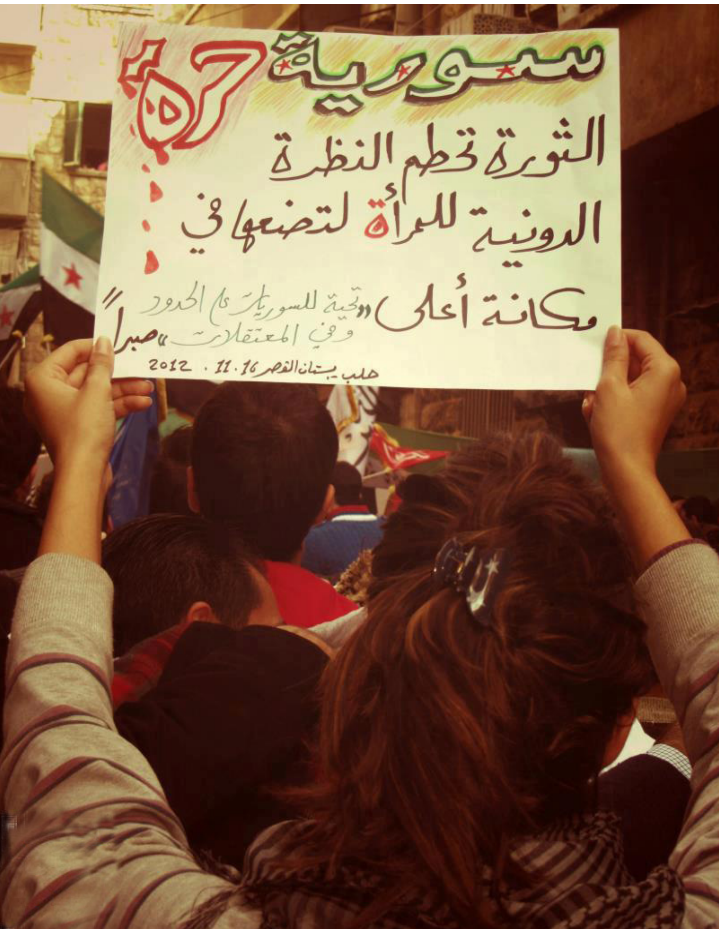 سورية حرة
الثورة تحطم النظرة
الدونية للمرأة لتضعها في
مكانة أعلى
"تحية للسوريات على الحدود
وفي المعتقلات" صبراً"
حلب بستان القصر 16 . 11 . 2012